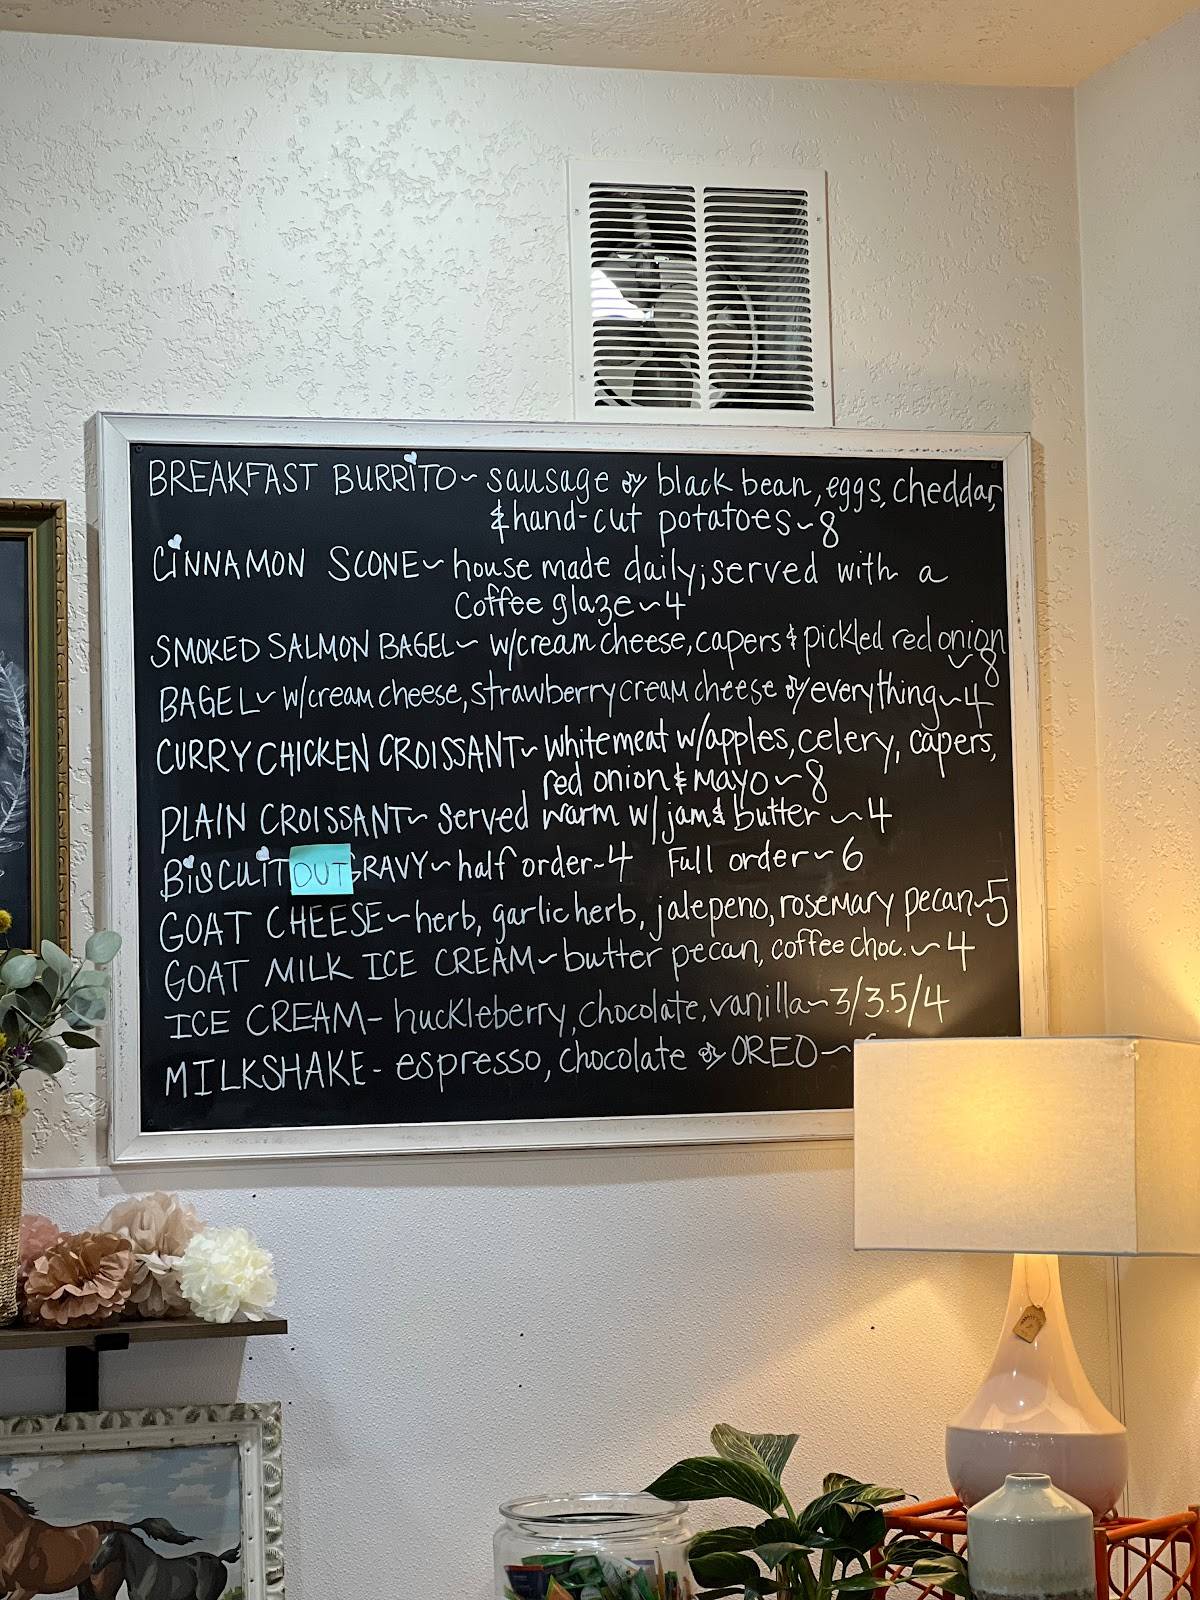 BREAKFAST BURRITO~ sausage or black bean, eggs, cheddar,
& hand-cut potatoes~8
CINNAMON SCONE~ house made daily; served with a
coffee glaze~4
SMOKED SALMON BAGEL~ w/cream cheese, capers & pickled red onion
~8
BAGEL~ w/cream cheese, strawberry cream cheese or everything~4
CURRY CHICKEN CROISSANT~ white meat w/apples, celery, capers,
red onion & mayo~8
PLAIN CROISSANT~ served warm w/ jam & butter ~4
BISCUIT OUT GRAVY~ half order~4 Full order~6
GOAT CHEESE~ herb, garlic herb, jalepeno, rosemary pecan~5
GOAT MILK ICE CREAM~ butter pecan, coffee choc.~4
ICE CREAM- huckleberry, chocolate, vanilla~3/3.5/4
MILKSHAKE- espresso, chocolate or OREO~